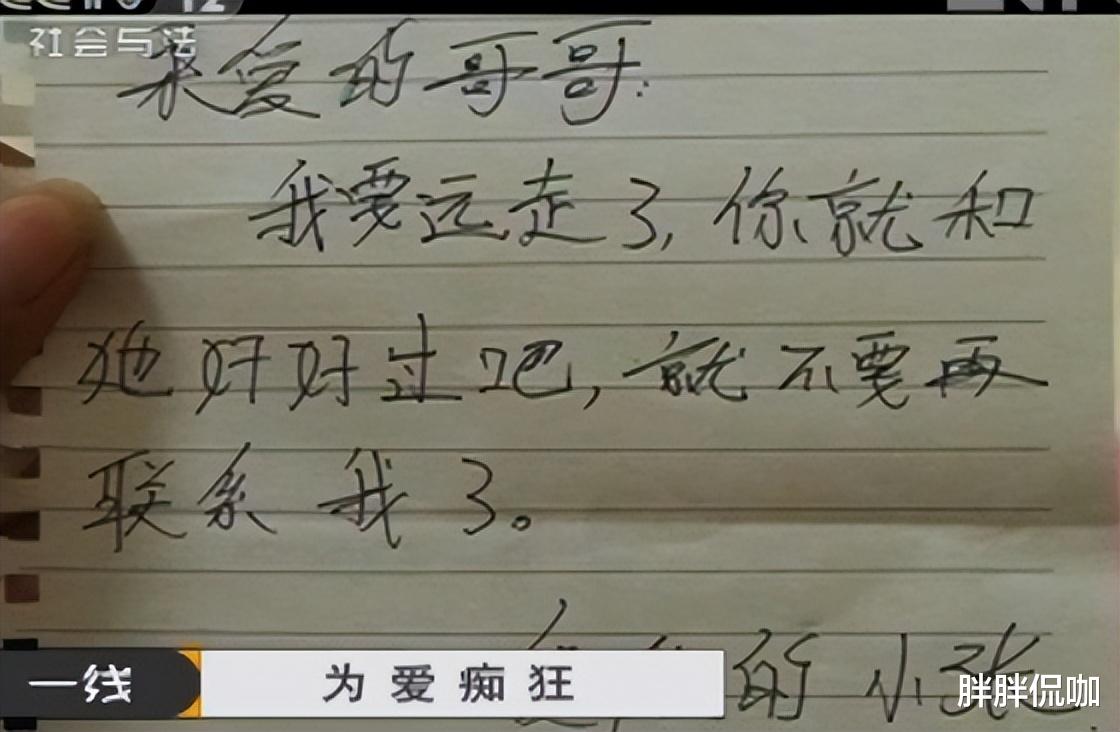 社会与法
亲爱的哥哥:
我要远走了,你就和
她好好过吧,就不要再
联系我了。
的小张
一线
为爱痴狂
胖胖侃咖